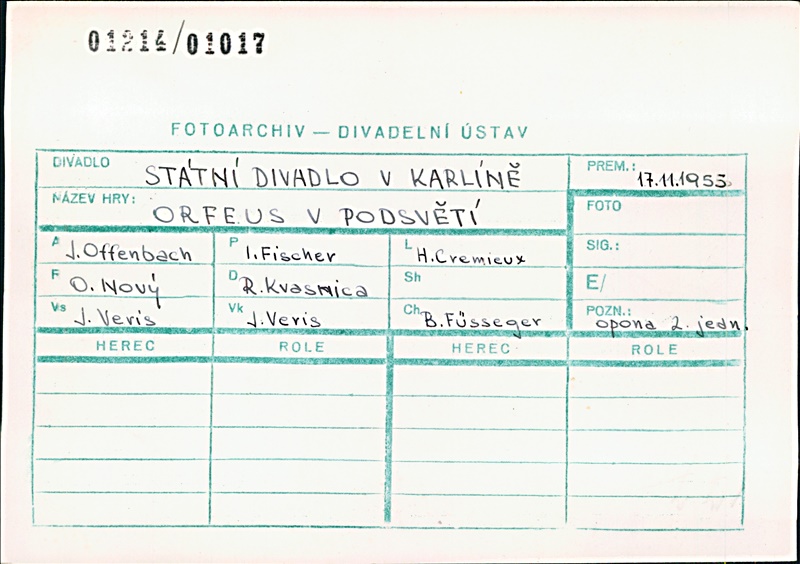 01214/01017
FOTOARCHIV — DIVADELNÍ ÚSTAV
DIVADLO STÁTNÍ DIVADLO V KARLÍNĚ
PREM.: 17.11.1953
NÁZEV HRY: ORFEUS V PODSVĚTÍ
FOTO
A J.Offenbach P I.Fischer L H.Cremieux
SIG.:
F O. Nový D R.Kvasnica Sh
E/
Vs J. Veris Vk J.Veris Ch B.Füsseger
POZN.: opona 2. jedn.
HEREC ROLE HEREC ROLE